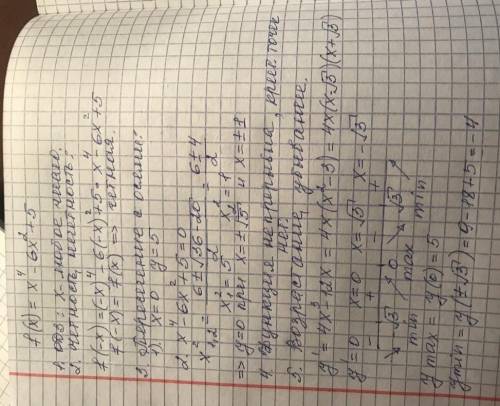 f(x) = x⁴ - 6x² + 5
1. ОДЗ: x - любое число.
2. Четность, нечетность:
f(-x) = (-x)⁴ - 6(-x)² + 5 = x⁴ - 6x² + 5
f(-x) = f(x) => четная.
3. Пересечение с осями:
1). x=0 y=5
2. x⁴ - 6x² + 5 = 0
x²₁,₂ = (6 ± √36-20)/2 = (6 ± 4)/2
x₁² = 5 x₂² = 1
=> y=0 при x = ±√5 и x = ±1
4. Функция непрерывна, крит. точек
нет.
5. Возрастание, убывание.
y' = 4x³ - 12x = 4x(x² - 3) = 4x(x-√3)(x+√3)
y' = 0 x=0 x=√3 x=-√3
- + - +
-√3 0 √3
min max min
y max = y(0) = 5
y min = y(±√3) = 9 - 18 + 5 = -4